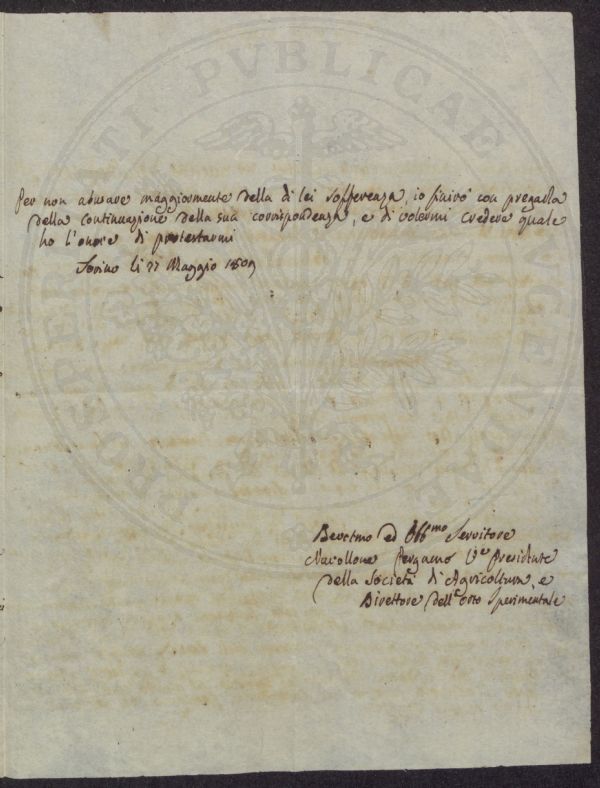 PROSPERITATI PVBLICAE AVGENDAE
Per non abusare maggiormente della di lei sofferenza, io finirò con pregarla
della continuazione della sua corrispondenza, e di volermi credere quale
ho l'onore di protestarmi
Torino li 27 Maggio 1809
Devotmo ed Obbmo Servitore
Pergamo Presidente
della Società di Agricoltura, e
Direttore dell'Orto Sperimentale